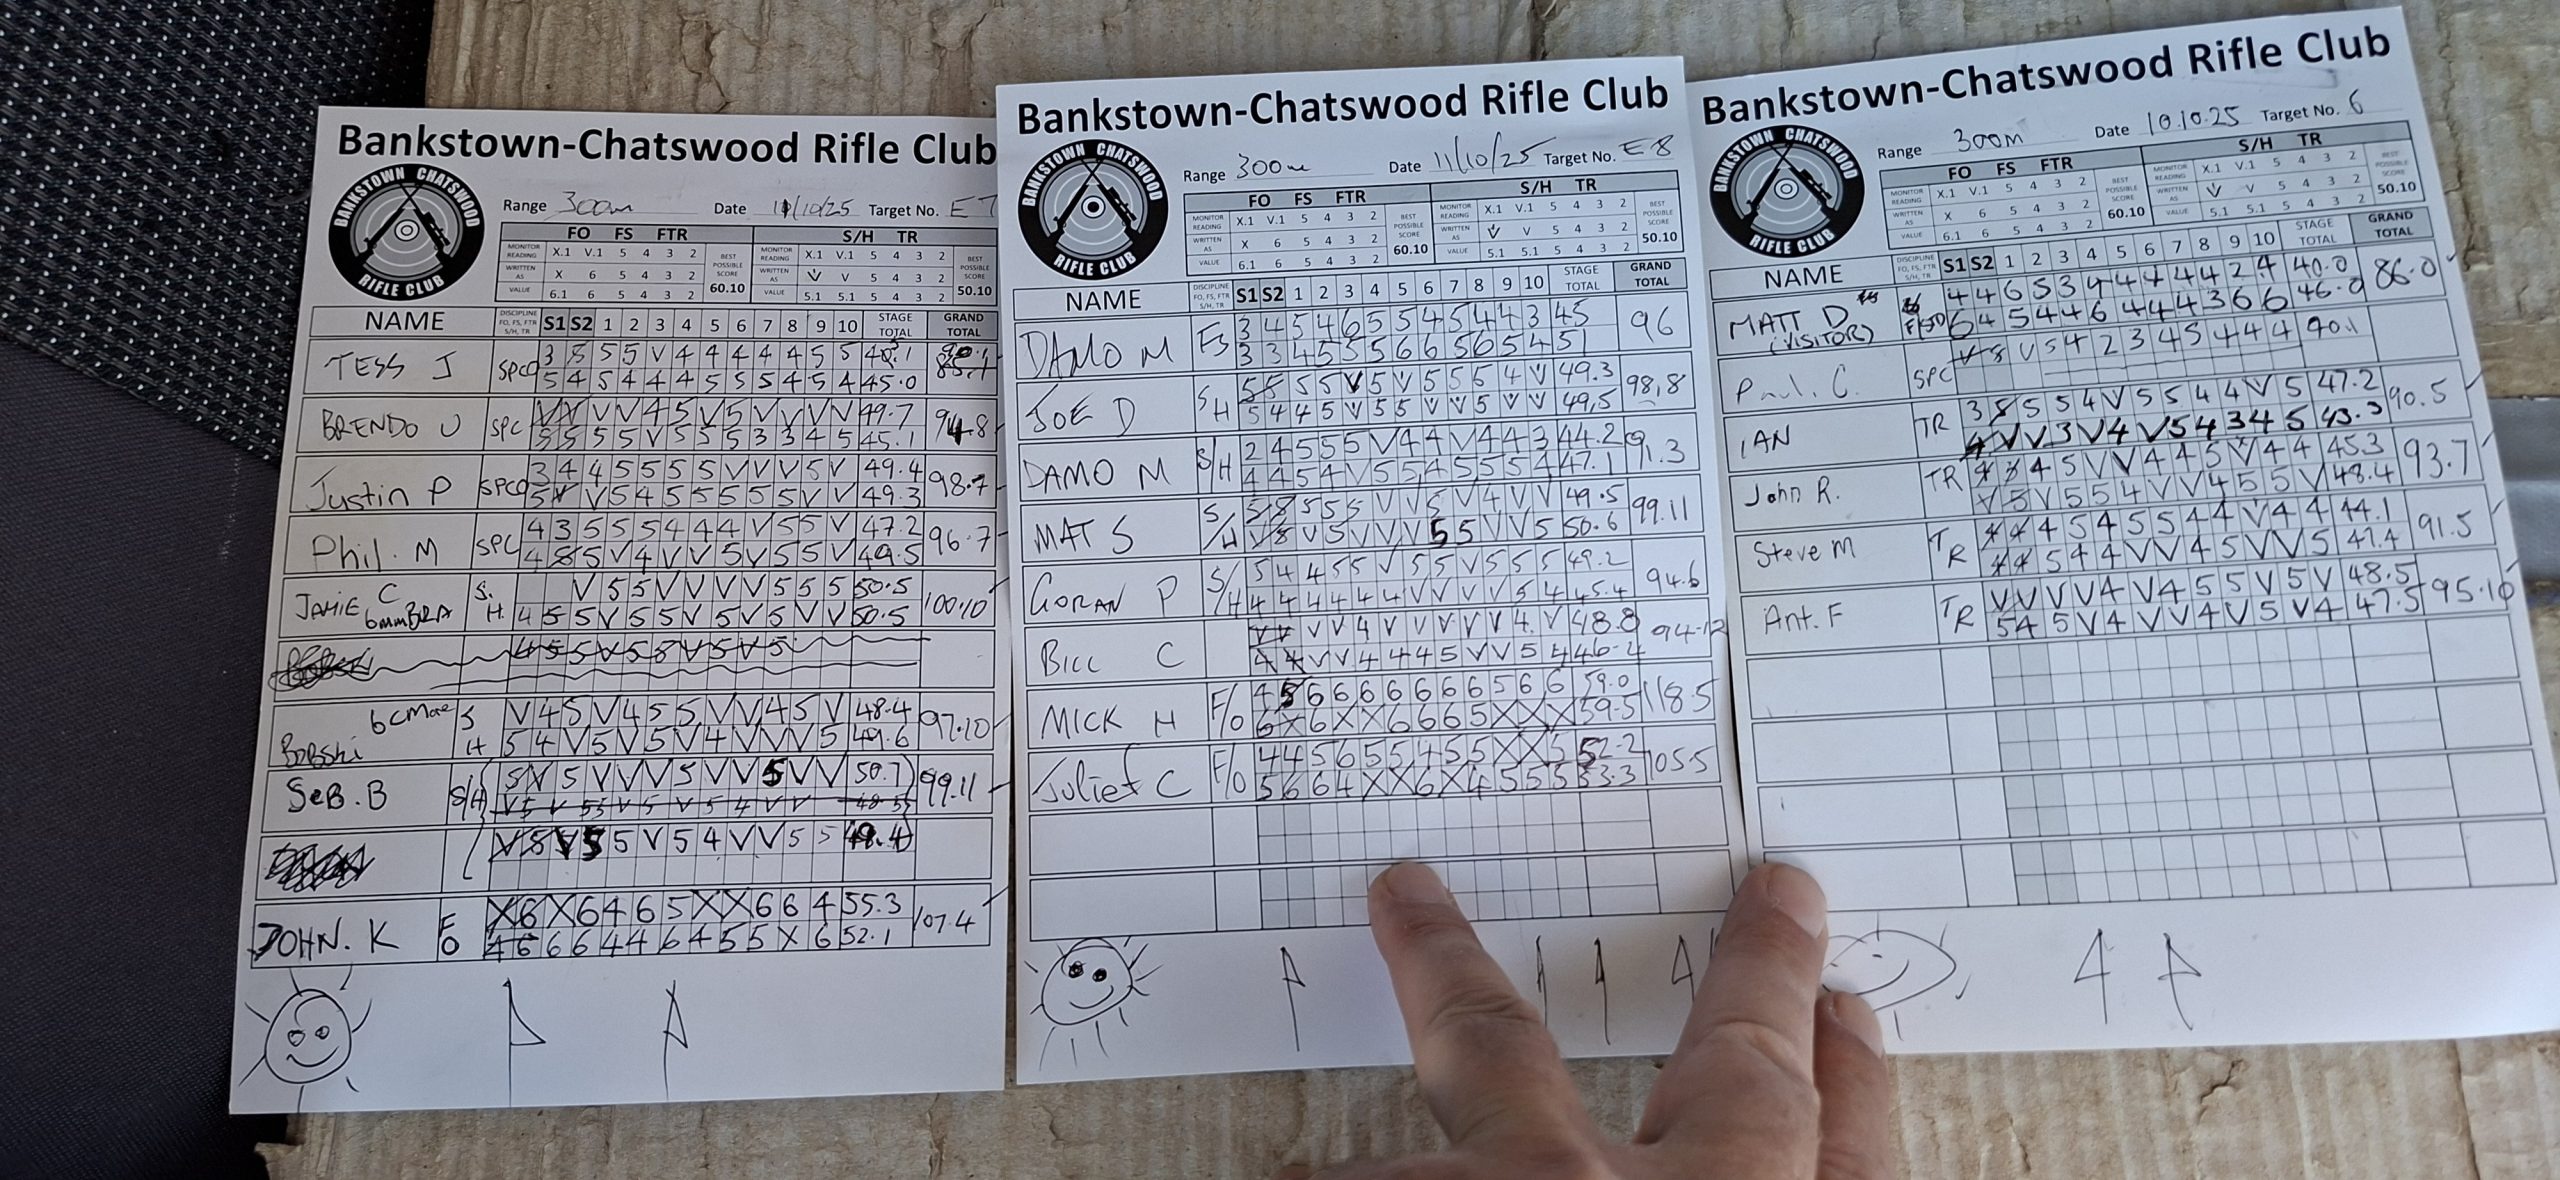 Bankstown-Chatswood Rifle Club
BANKSTOWN CHATSWOOD
RIFLE CLUB
Range 300m Date 11/10/25 Target No. E7
FO FS FTR S/H TR
MONITOR READING X.1 V.1 5 4 3 2 BEST POSSIBLE SCORE 60.10 MONITOR READING X.1 V.1 5 4 3 2 BEST POSSIBLE SCORE 50.10
WRITTEN AS X 6 5 4 3 2 WRITTEN AS V V 5 4 3 2
VALUE 6.1 6 5 4 3 2 VALUE 5.1 5.1 5 4 3 2
NAME DISCIPLINE FO, FS, FTR S/H, TR S1 S2 1 2 3 4 5 6 7 8 9 10 STAGE TOTAL GRAND TOTAL
TESS J
5 4 5 4 4 4 5 5 5 4 5 4 45.0
BRENDO U SPC V V V V 4 5 V 5 V V V V 49.7
5 5 5 5 V 5 5 5 3 3 4 5 45.1 94.8
Justin P 3 4 4 5 5 5 5 V V V 5 V 49.4
5 V V 5 4 5 5 5 5 5 V V 49.3 98.7
Phil. M SPC 4 3 5 5 5 5 4 4 4 V 5 5 V 47.2
4 5 5 V 4 V V 5 V 5 5 V 49.5 96.7
JAMIE C 6mmBRA S.H. V 5 5 V V V V 5 5 5 50.5
4 5 5 V 5 5 V 5 V 5 V V 50.5 100.10
BOBSKi S H V 4 5 V 4 5 5 V V 4 5 V 48.4
5 4 V 5 V 5 V 4 V V V 5 49.6 97.10
SeB. B S/H 5 V 5 V V V 5 V V 5 V V 50.7 99.11
V 5 V 5 5 V 5 4 V V 5 5 48.4
JOHN. K FO X 6 X 6 4 6 5 X X 6 6 4 55.3
4 6 6 6 4 4 6 4 5 5 X 6 52.1 107.4
Bankstown-Chatswood Rifle Club
BANKSTOWN CHATSWOOD
RIFLE CLUB
Range 300m Date 11/10/25 Target No. E8
FO FS FTR S/H TR
MONITOR READING X.1 V.1 5 4 3 2 BEST POSSIBLE SCORE 60.10 MONITOR READING X.1 V.1 5 4 3 2 BEST POSSIBLE SCORE 50.10
WRITTEN AS X 6 5 4 3 2 WRITTEN AS V V 5 4 3 2
VALUE 6.1 6 5 4 3 2 VALUE 5.1 5.1 5 4 3 2
NAME DISCIPLINE FO, FS, FTR S/H, TR S1 S2 1 2 3 4 5 6 7 8 9 10 STAGE TOTAL GRAND TOTAL
DAMO M FS 3 4 5 4 6 5 5 4 5 4 4 3 45
3 3 4 5 5 5 6 6 5 6 5 4 51 96
JOE D S H 5 5 5 5 V 5 V 5 5 5 4 V 49.3
5 4 4 5 V 5 5 V V 5 V V 49,5 98,8
DAMO M S/H 2 4 5 5 5 V 4 4 V 4 4 3 44.2
4 4 5 4 V 5 5 4 5 5 5 4 47.1 91.3
MAT S S/H 5 8 5 5 5 V V 5 V 4 V V 49.5
V 5 V 5 V V V 5 5 V V 5 50.6 99.11
GORAN P S/H 5 4 4 5 5 V 5 5 V 5 5 5 49.2
4 4 4 4 4 4 V V V V 5 4 45.4 94.6
BILL C V V V V 4 V V V V V 4 V 48.8
4 4 V V 4 4 4 5 V V 5 4 46.4 94.12
MICK H F/O 4 5 6 6 6 6 6 6 6 5 6 6 59.0
6 X 6 X X 6 6 6 5 X X X 59.5 118.5
Juliet C F/O 4 4 5 6 5 5 4 5 5 X X 5 52.2
5 6 6 4 X X 6 X 4 5 5 5 53.3 105.5
Bankstown-Chatswood Rifle Club
BANKSTOWN CHATSWOOD
RIFLE CLUB
Range 300m Date 10.10.25 Target No. 6
FO FS FTR S/H TR
MONITOR READING X.1 V.1 5 4 3 2 BEST POSSIBLE SCORE 60.10 MONITOR READING X.1 V.1 5 4 3 2 BEST POSSIBLE SCORE 50.10
WRITTEN AS X 6 5 4 3 2 WRITTEN AS V V 5 4 3 2
VALUE 6.1 6 5 4 3 2 VALUE 5.1 5.1 5 4 3 2
NAME DISCIPLINE FO, FS, FTR S/H, TR S1 S2 1 2 3 4 5 6 7 8 9 10 STAGE TOTAL GRAND TOTAL
MATT D 4 4 6 5 3 4 4 4 4 4 2 4 40.0
(VISITOR) 6 4 5 4 4 6 4 4 4 3 6 6 46.0 86.0
Paul. C. SPC V 8 V 5 4 2 3 4 5 4 4 4 40.1
IAN TR 3 5 5 5 4 V 5 5 4 4 V 5 47.2
4 V V 3 V 4 V 5 4 3 4 5 43.3 90.5
John R. TR 4 5 V V 4 4 5 V 4 4 45.3
V 5 V 5 5 4 V V 4 5 5 V 48.4 93.7
Steve M TR 4 4 4 5 4 5 5 4 4 V 4 4 44.1
4 4 5 4 4 V V 4 5 V V 5 47.4 91.5
Ant. F TR V V V V 4 V 4 5 5 V 5 V 48.5
5 4 5 V 4 V V 4 V 5 V 4 47.5 95.10